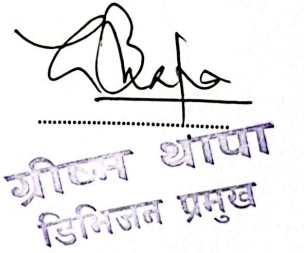 ग्रीष्म थापा
डिभिजन प्रमुख